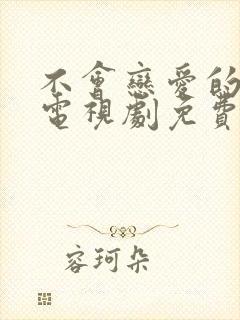 不會戀愛的
電視劇免費
容珂朵